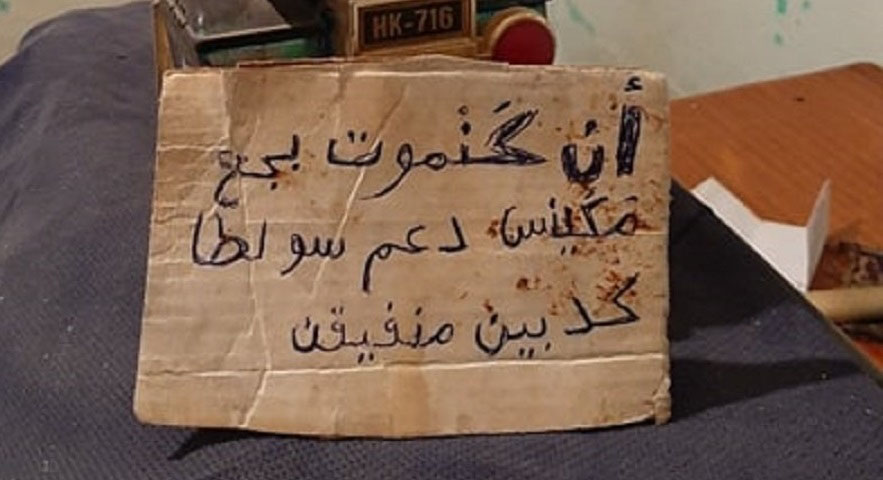 HK-716
أن كَنْموت بجع
مَكَينس دعم سولطا
كدبين منفيقن